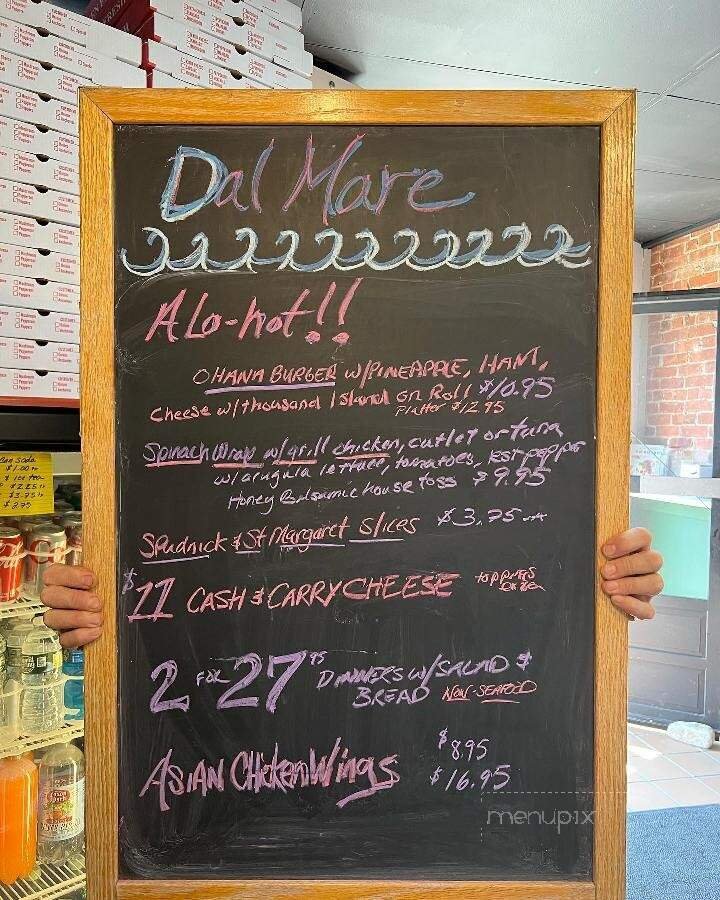 Dal Mare
Alo-hot!!
OHANA BURGER W/PINEAPPLE, HAM,
Cheese w/thousand Island on Roll $10.95
Platter $12.95
Spinach Wrap w/grill chicken, cutlet or tuna
w/arugula lettuce, tomatoes, rst pepper
Honey Balsamic house toss $9.95
Spudnick & St Margaret Slices $3.75
$11 CASH & CARRY CHEESE toppings extra
2 FOR 27 95 DINNERS W/SALAD &
BREAD NON-SEAFOOD
ASIAN Chicken Wings $8.95
$16.95
menupix